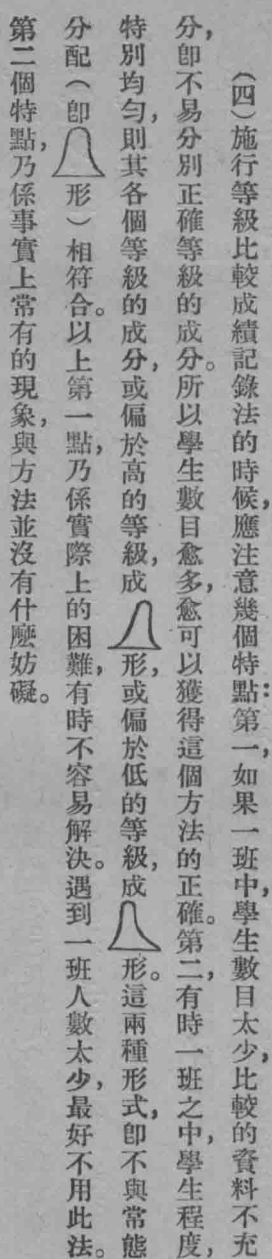 (四)施行等級比較成績記錄法的時候，應注意幾個特點：第一，如果一班中，學生數目太少，比較的資料不充
分，卽不易分別正確等級的成分。所以學生數目愈多，愈可以獲得這個方法的正確。第二，有時一班之中，學生程度，
特別均勻，則其各個等級的成分，或偏於高的等級，成形，或偏於低的等級，成形。這兩種形式，卽不與常態
分配(卽形)相符合。以上第一點，乃係實際上的困難，有時不容易解決。遇到一班人數太少，最好不用此法。
第二個特點，乃係事實上常有的現象，與方法並沒有什麽妨礙。